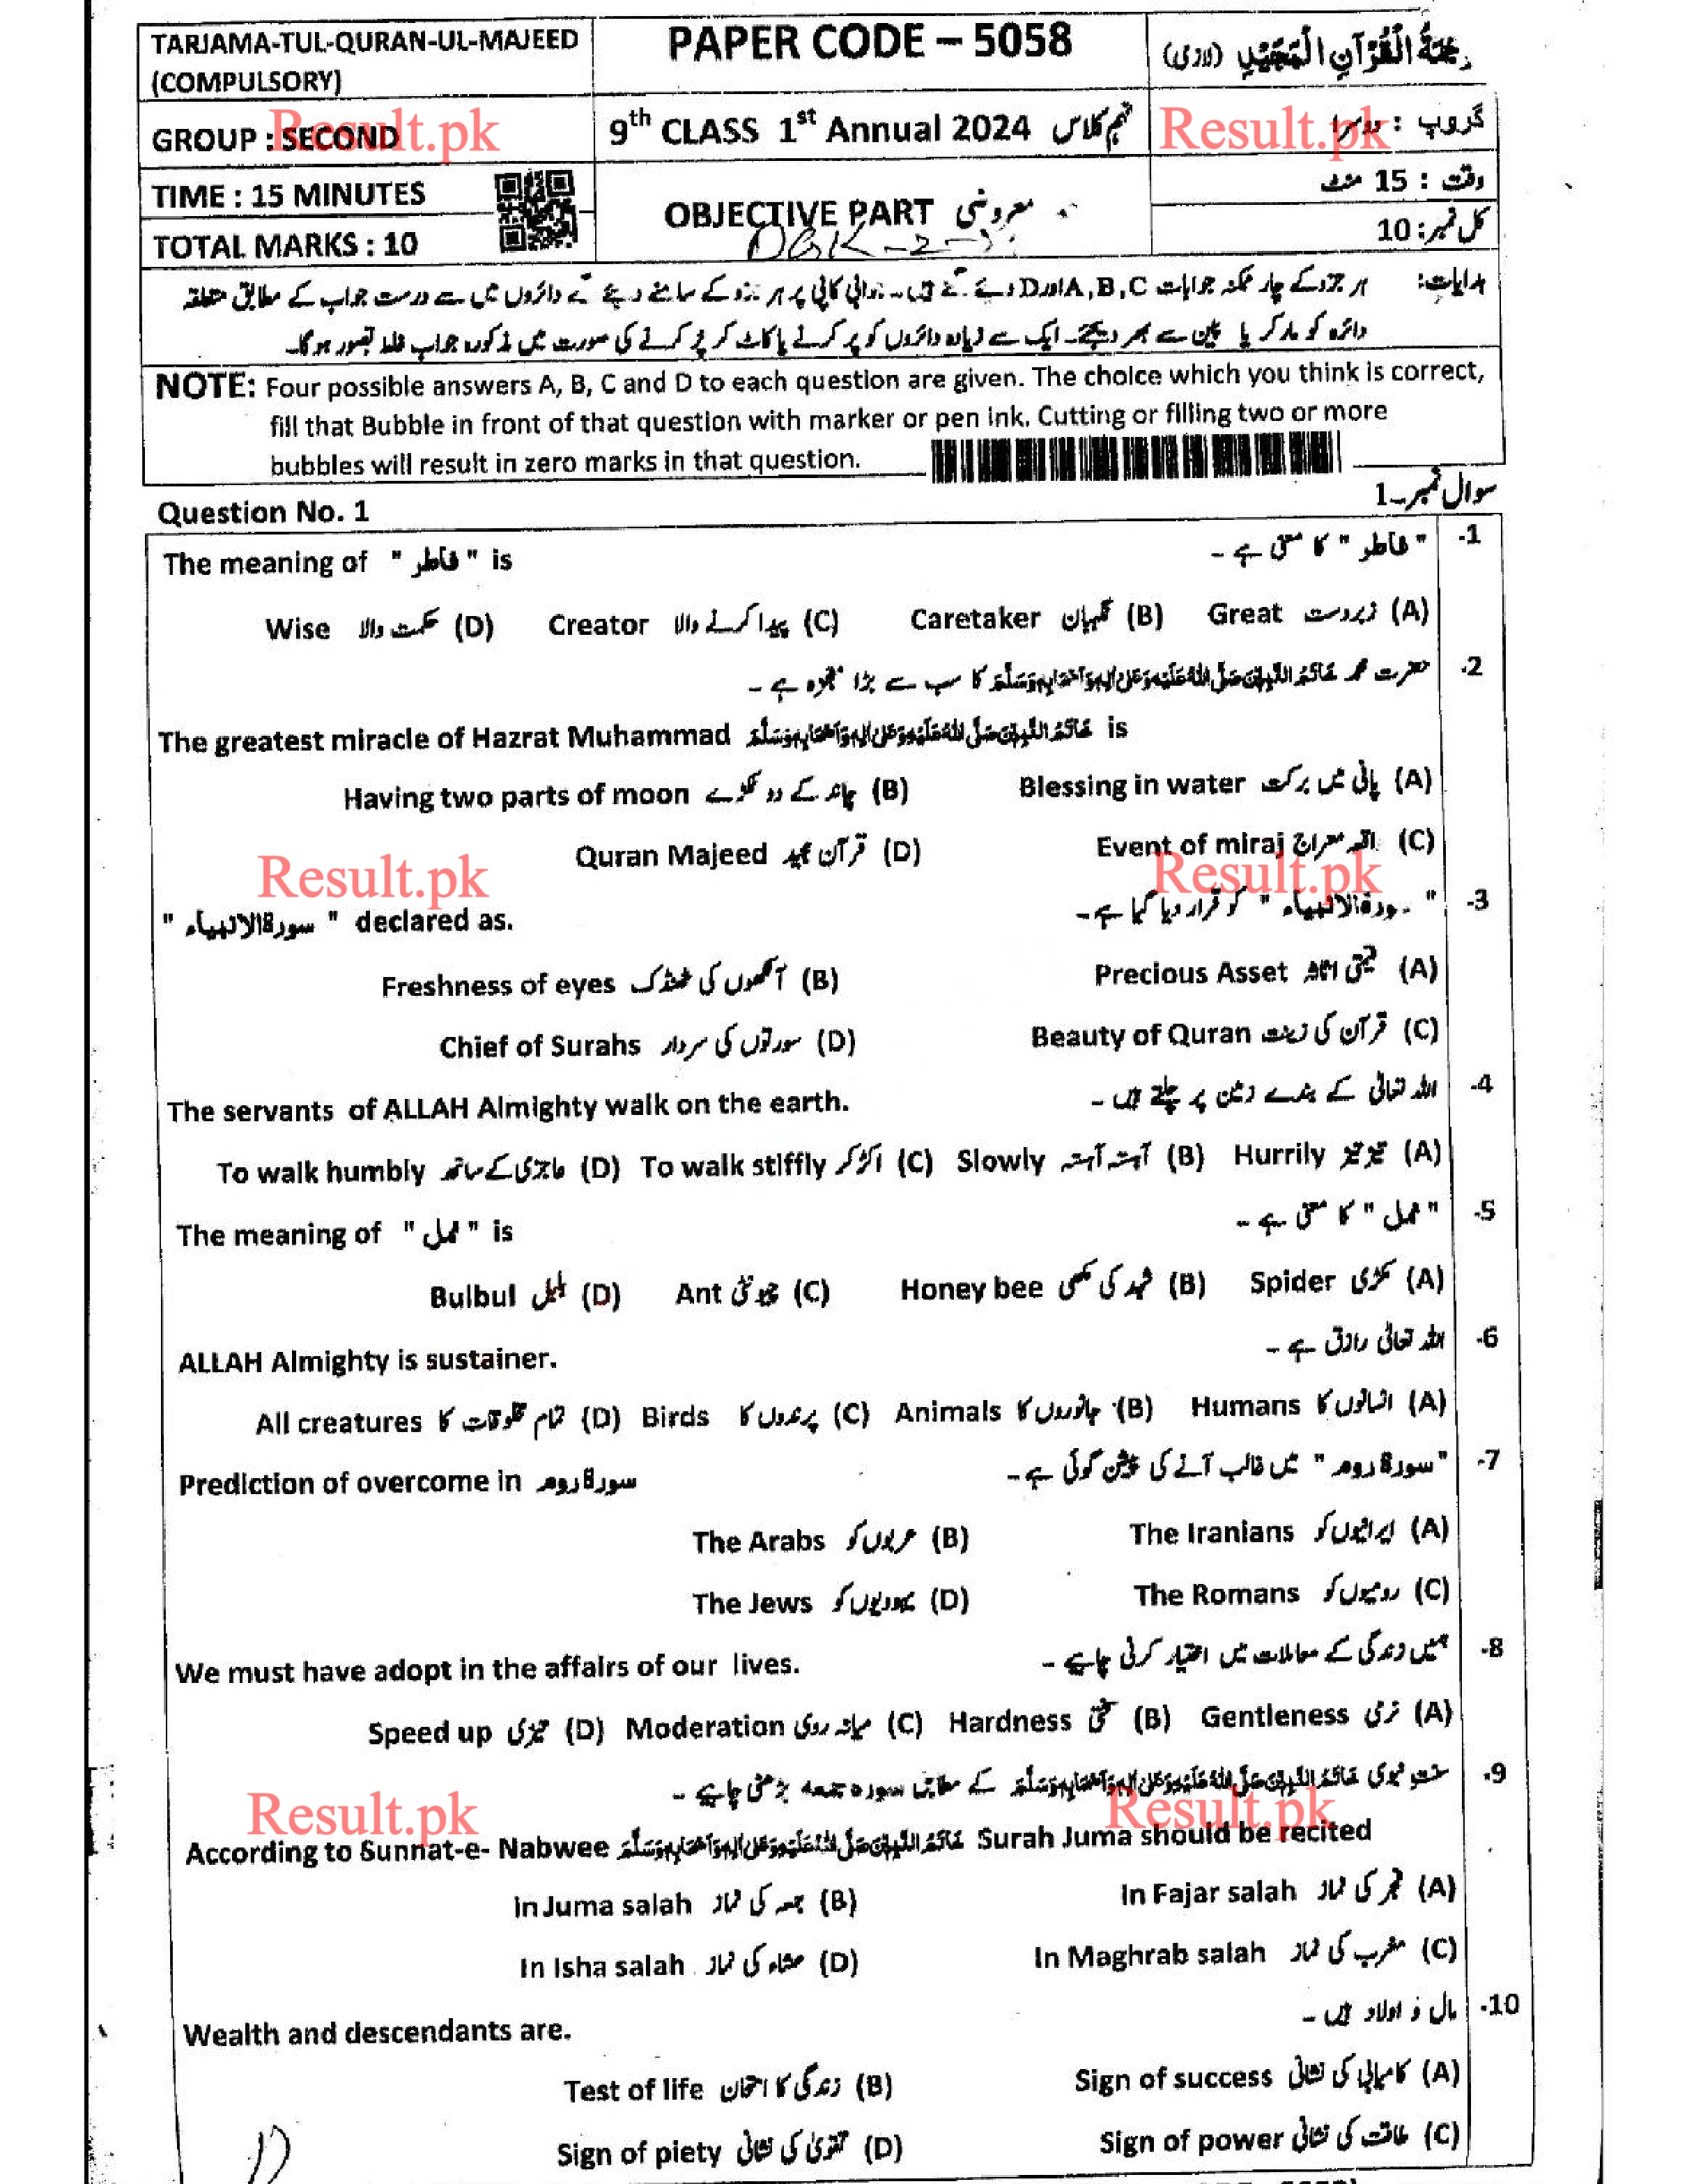 TARJAMA-TUL-QURAN-UL-MAJEED
(COMPULSORY)
PAPER CODE – 5058
(لازمی)
GROUP : SECOND
9th CLASS 1st Annual 2024 نہم کلاس
گروپ : دوسرا
Result.pk
Result.pk
TIME : 15 MINUTES
وقت : 15 منٹ
OBJECTIVE PART معروضی
TOTAL MARKS : 10
کل نمبر: 10
DGK-2-
ہدایات: ہر جزو کے چار ممکنہ جوابات A, B, C اور D دیے گئے ہیں۔ جوابی کاپی پر ہر جزو کے سامنے دیے گئے دائروں میں سے درست جواب کے مطابق متعلقہ
دائرہ کو مارکر یا پین سے بھر دیجئے۔ ایک سے زیادہ دائروں کو پر کرنے یا کاٹ کر پر کرنے کی صورت میں مذکورہ جواب غلط تصور ہوگا۔
NOTE: Four possible answers A, B, C and D to each question are given. The choice which you think is correct,
fill that Bubble in front of that question with marker or pen ink. Cutting or filling two or more
bubbles will result in zero marks in that question.
Question No. 1
سوال نمبر۔1
1- "فاطر" کا معنی ہے ۔
The meaning of "فاطر" is
(A) زبردست Great (B) نگہبان Caretaker (C) پیدا کرنے والا Creator (D) حکمت والا Wise
2- حضرت محمد خَاتَمُ النَّبِیّٖنَ صَلَّی اللّٰہُ عَلَیْہِ وَعَلٰی اٰلِہٖ وَاَصْحَابِہٖ وَسَلَّمَ کا سب سے بڑا معجزہ ہے ۔
The greatest miracle of Hazrat Muhammad خَاتَمُ النَّبِیّٖنَ صَلَّی اللّٰہُ عَلَیْہِ وَعَلٰی اٰلِہٖ وَاَصْحَابِہٖ وَسَلَّمَ is
(A) پانی میں برکت Blessing in water (B) چاند کے دو ٹکڑے Having two parts of moon
(C) معراج Event of miraj (D) قرآن مجید Quran Majeed
Result.pk
Result.pk
3- "سورۃ الانبیاء" کو قرار دیا گیا ہے۔
"سورۃ الانبیاء" declared as.
(A) قیمتی اثاثہ Precious Asset (B) آنکھوں کی ٹھنڈک Freshness of eyes
(C) قرآن کی زینت Beauty of Quran (D) سورتوں کی سردار Chief of Surahs
4- اللہ تعالیٰ کے بندے زمین پر چلتے ہیں ۔
The servants of ALLAH Almighty walk on the earth.
(A) تیز تیز Hurrily (B) آہستہ آہستہ Slowly (C) اکڑ کر To walk stiffly (D) عاجزی کے ساتھ To walk humbly
5- "نمل" کا معنی ہے ۔
The meaning of "نمل" is
(A) مکڑی Spider (B) شہد کی مکھی Honey bee (C) چیونٹی Ant (D) بلبل Bulbul
6- اللہ تعالیٰ رازق ہے ۔
ALLAH Almighty is sustainer.
(A) انسانوں کا Humans (B) جانوروں کا Animals (C) پرندوں کا Birds (D) تمام مخلوقات کا All creatures
7- "سورۃ روم" میں غالب آنے کی پیشن گوئی ہے۔
Prediction of overcome in سورۃ روم
(A) ایرانیوں کو The Iranians (B) عربوں کو The Arabs
(C) رومیوں کو The Romans (D) یہودیوں کو The Jews
8- ہمیں زندگی کے معاملات میں اختیار کرنی چاہیے ۔
We must have adopt in the affairs of our lives.
(A) نرمی Gentleness (B) سختی Hardness (C) میانہ روی Moderation (D) تیزی Speed up
9- سنت نبوی خَاتَمُ النَّبِیّٖنَ صَلَّی اللّٰہُ عَلَیْہِ وَعَلٰی اٰلِہٖ وَاَصْحَابِہٖ وَسَلَّمَ کے مطابق سورہ جمعہ پڑھنی چاہیے ۔
Result.pk
Result.pk
According to Sunnat-e- Nabwee خَاتَمُ النَّبِیّٖنَ صَلَّی اللّٰہُ عَلَیْہِ وَعَلٰی اٰلِہٖ وَاَصْحَابِہٖ وَسَلَّمَ Surah Juma should be recited
(A) فجر کی نماز In Fajar salah (B) جمعہ کی نماز In Juma salah
(C) مغرب کی نماز In Maghrab salah (D) عشاء کی نماز In Isha salah
10- مال و اولاد ہیں ۔
Wealth and descendants are.
(A) کامیابی کی نشانی Sign of success (B) زندگی کا امتحان Test of life
(C) طاقت کی نشانی Sign of power (D) تقویٰ کی نشانی Sign of piety